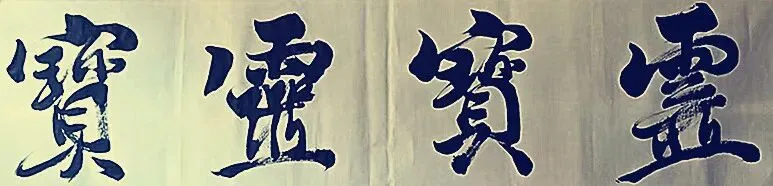 靈寶靈寶